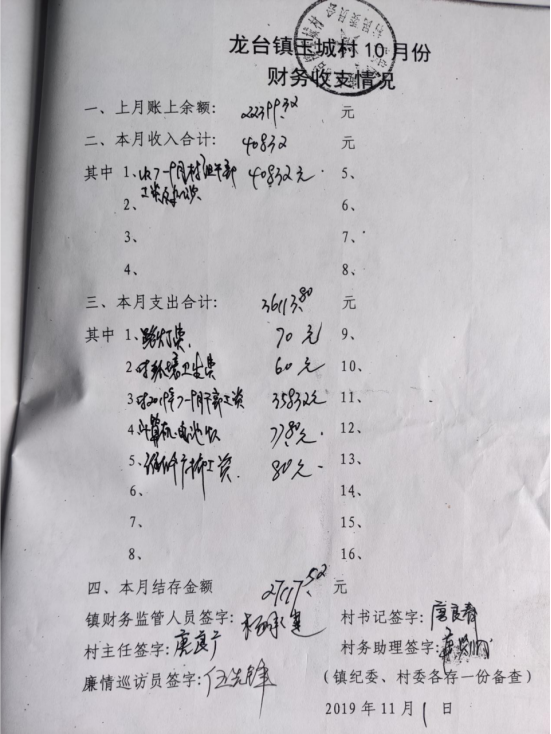 龙台镇玉城村10月份
财务收支情况
一、上月账上余额: 22399.32 元
二、本月收入合计: 40832 元
其中 1、收7-9月村组干部工资及办公费 40832元 5、
2、 6、
3、 7、
4、 8、
三、本月支出合计: 36113.80 元
其中 1、路灯费 70元 9、
2、付环境卫生费 60元 10、
3、付2019年7-9月干部工资 35832元 11、
4、计算机 12、
5、工资 80元 13、
6、 14、
7、 15、
8、 16、
四、本月结存金额 27117.52 元
镇财务监管人员签字: 村书记签字: 唐良春
村主任签字: 唐良广 村务助理签字:
廉情巡访员签字: 伍先锋 (镇纪委、村委各存一份备查)
2019 年 11 月 1 日